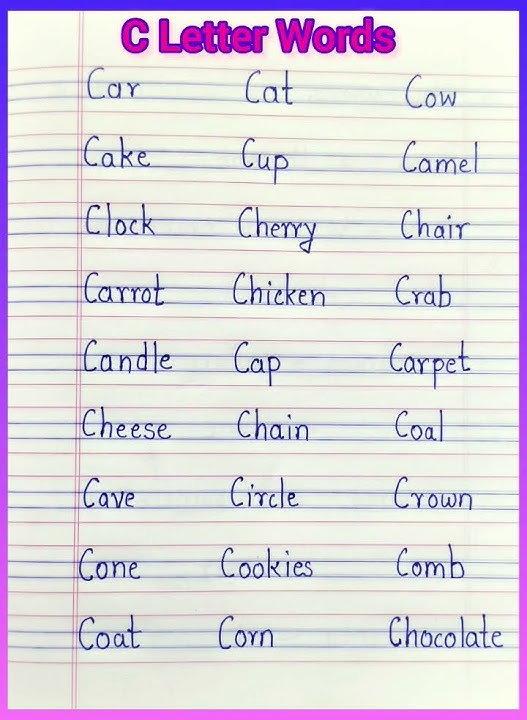 C Letter Words
Car Cat Cow
Cake Cup Camel
Clock Cherry Chair
Carrot Chicken Crab
Candle Cap Carpet
Cheese Chain Coal
Cave Circle Crown
Cone Cookies Comb
Coat Corn Chocolate